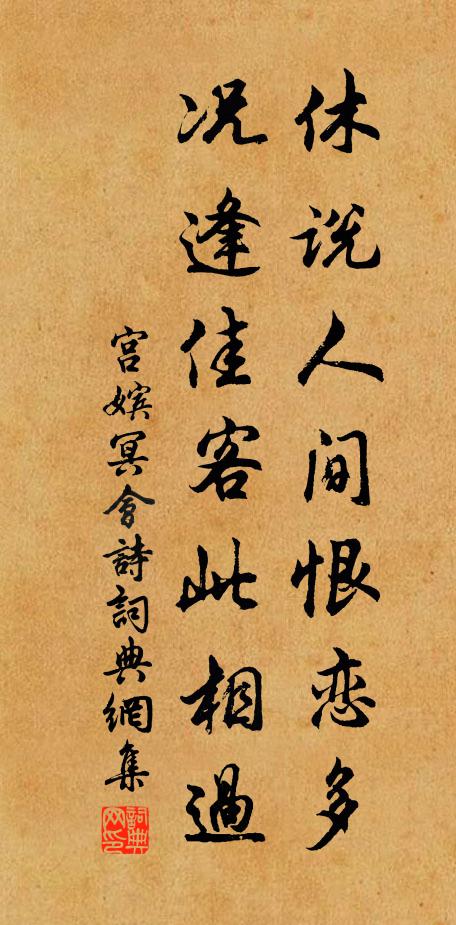 休说人间恨恋多
况逢佳客此相過
宫嫔冥會詩詞典網集
詞典网印